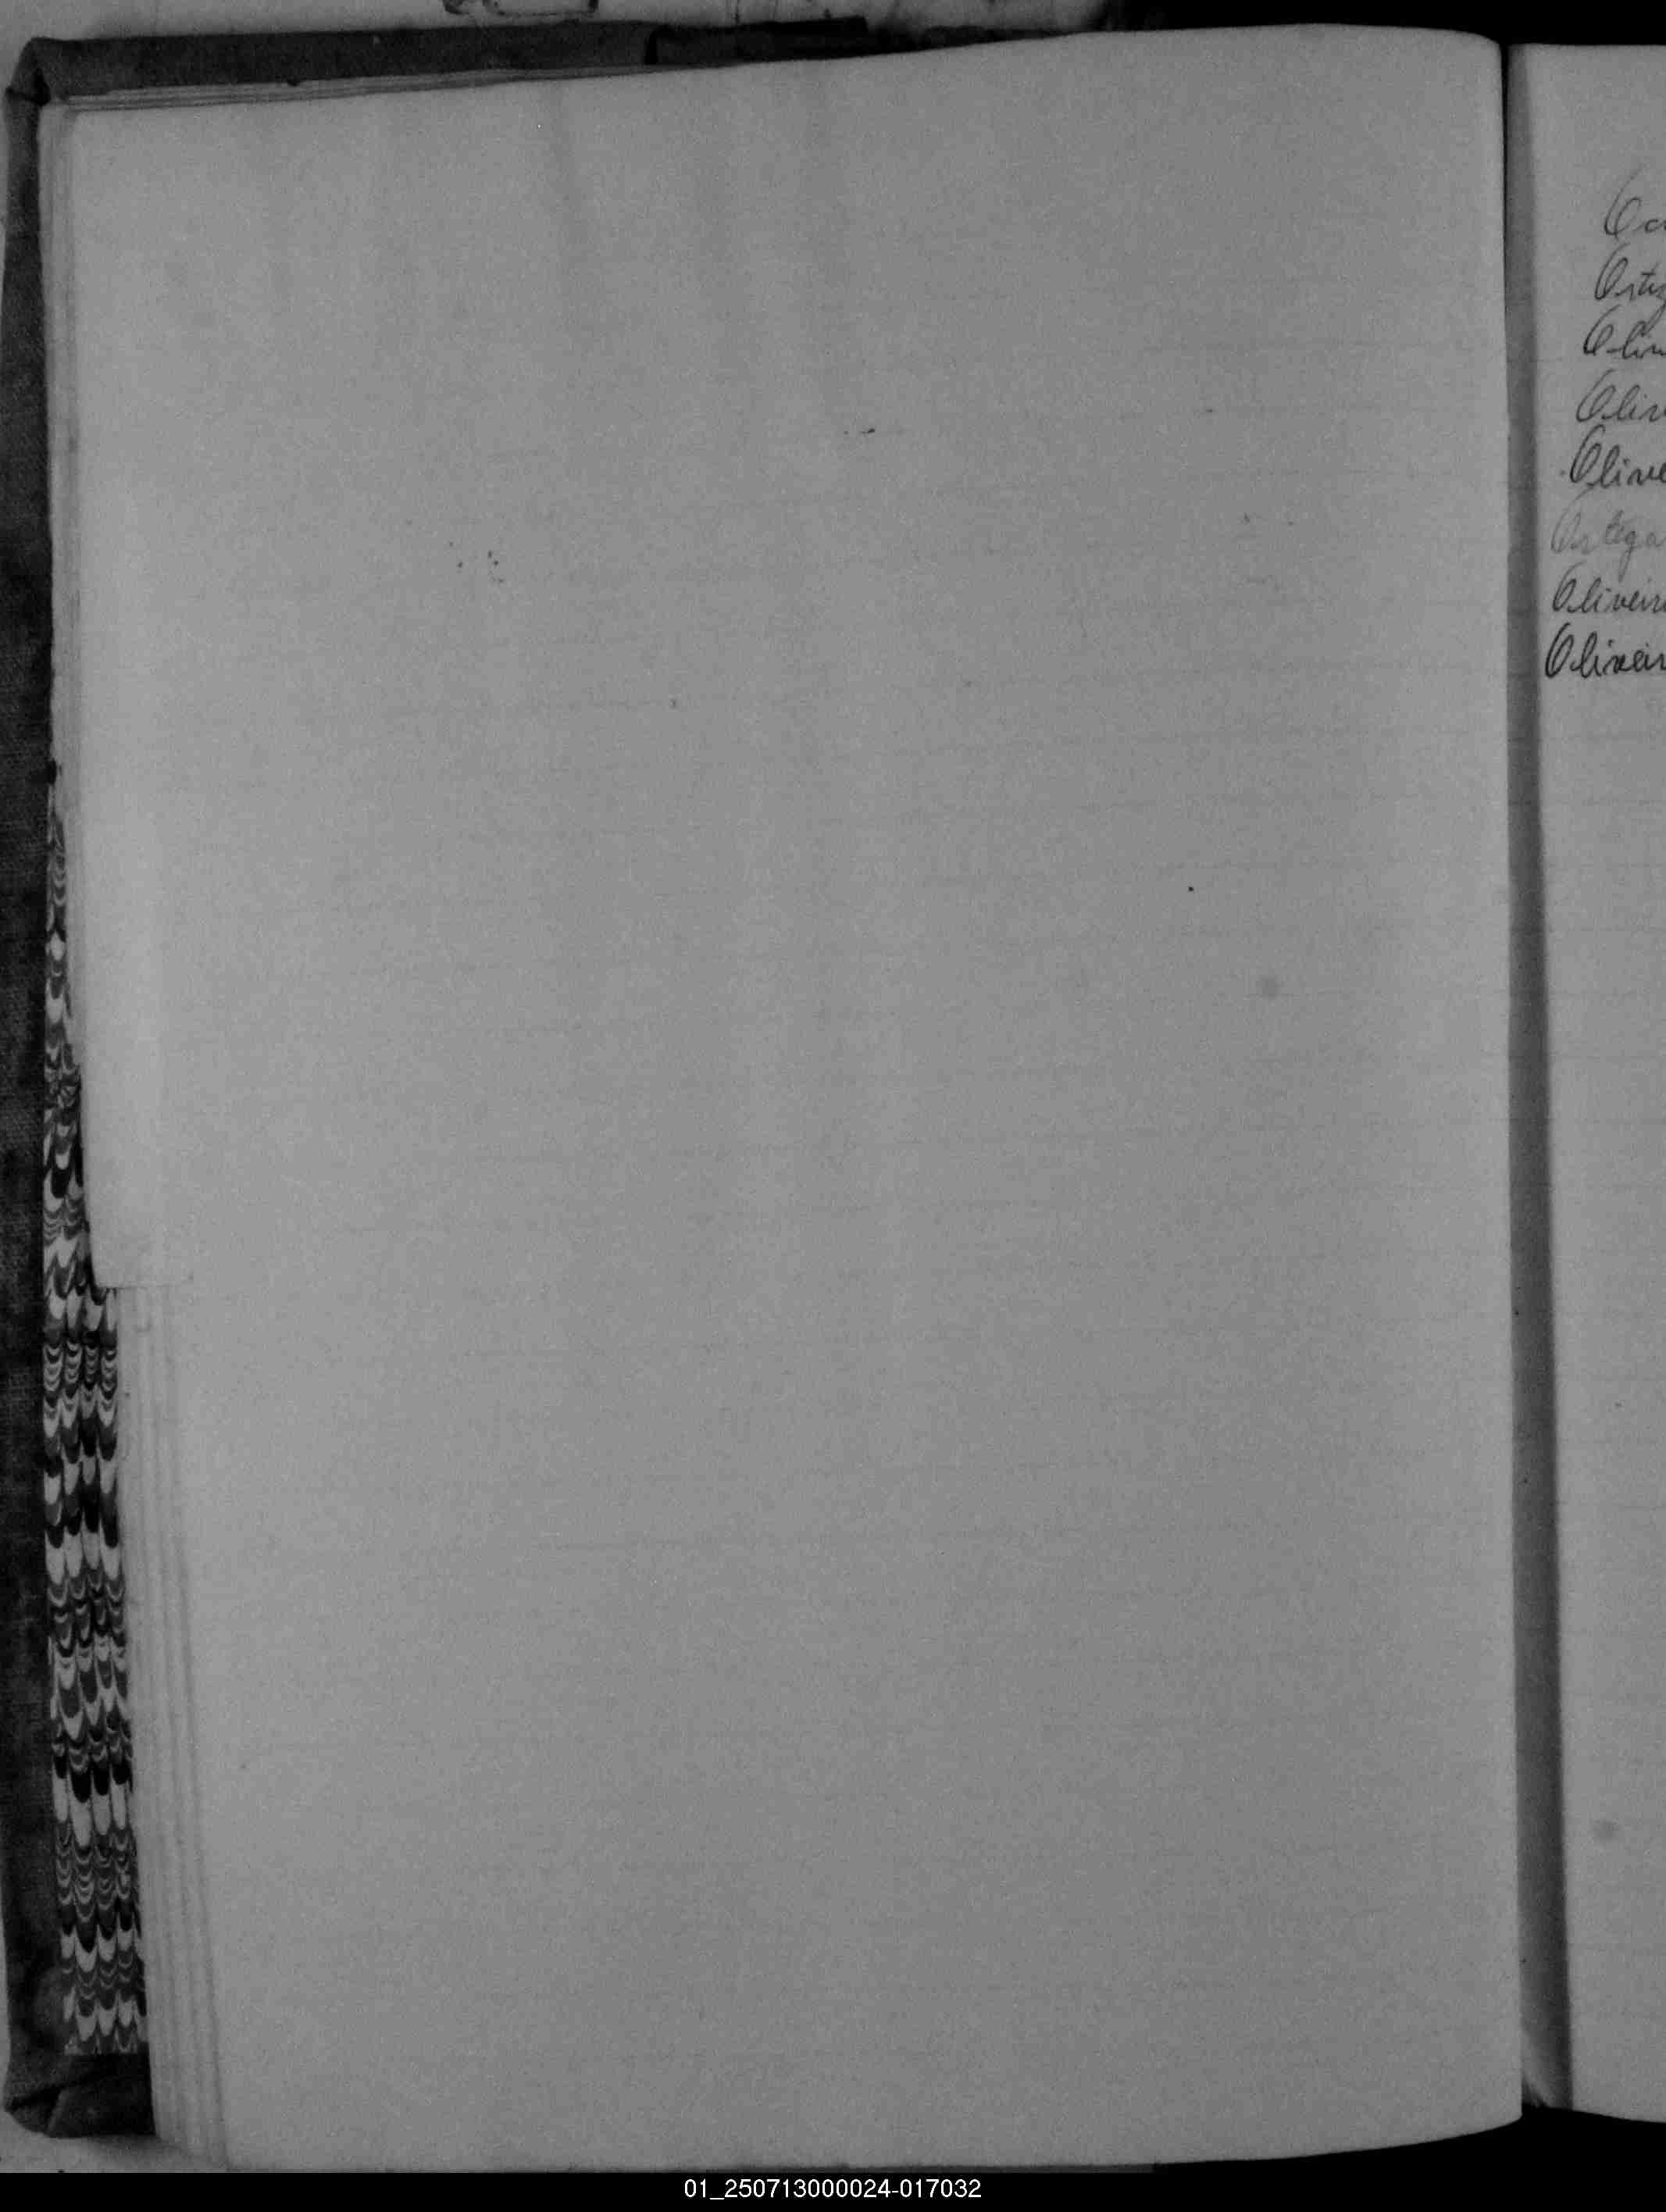 Ortiz
Oliv
Olive
Ortega
Oliveir
Oliveir
01_250713000024-017032